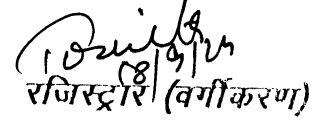 18/9/24
रजिस्ट्रार (वर्गीकरण)